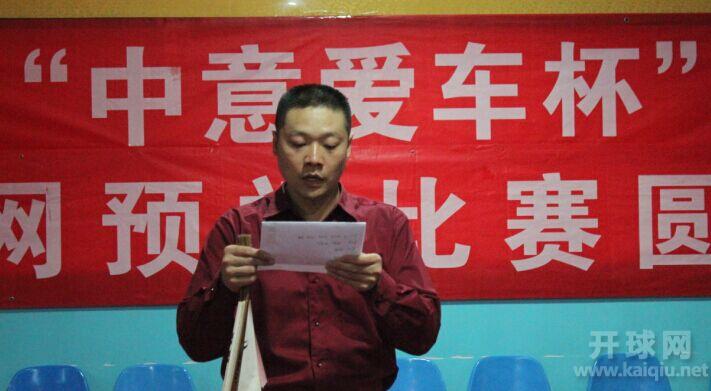 “中意爱车杯”
网预 比赛圆
开球网
www.kaiqiu.net